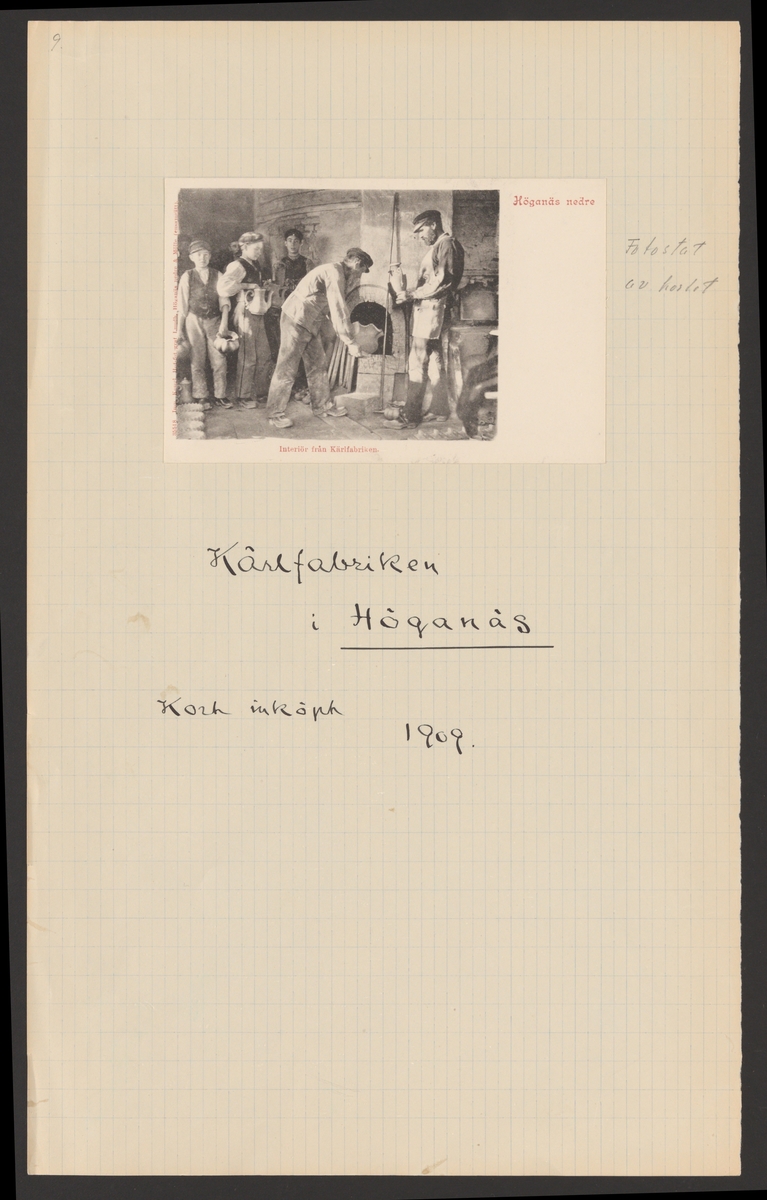 9.
Höganäs nedre
Fotostat
av kortet
Interiör från Kärlfabriken.
Kärlfabriken
i Höganäs
Kort inköpt
1909.